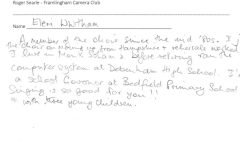 Roger Searle - Framlingham Camera Club
Name Eleni Whitham
A member of the choir since the end '80s. I j
the choir on moving up from Hampshire &
I live in Monk Soham & before retiring ran the
computer system at Debenham High School. I'm
a School Governor at Bedfield Primary School
Singing is so good for you!!
with three young children.